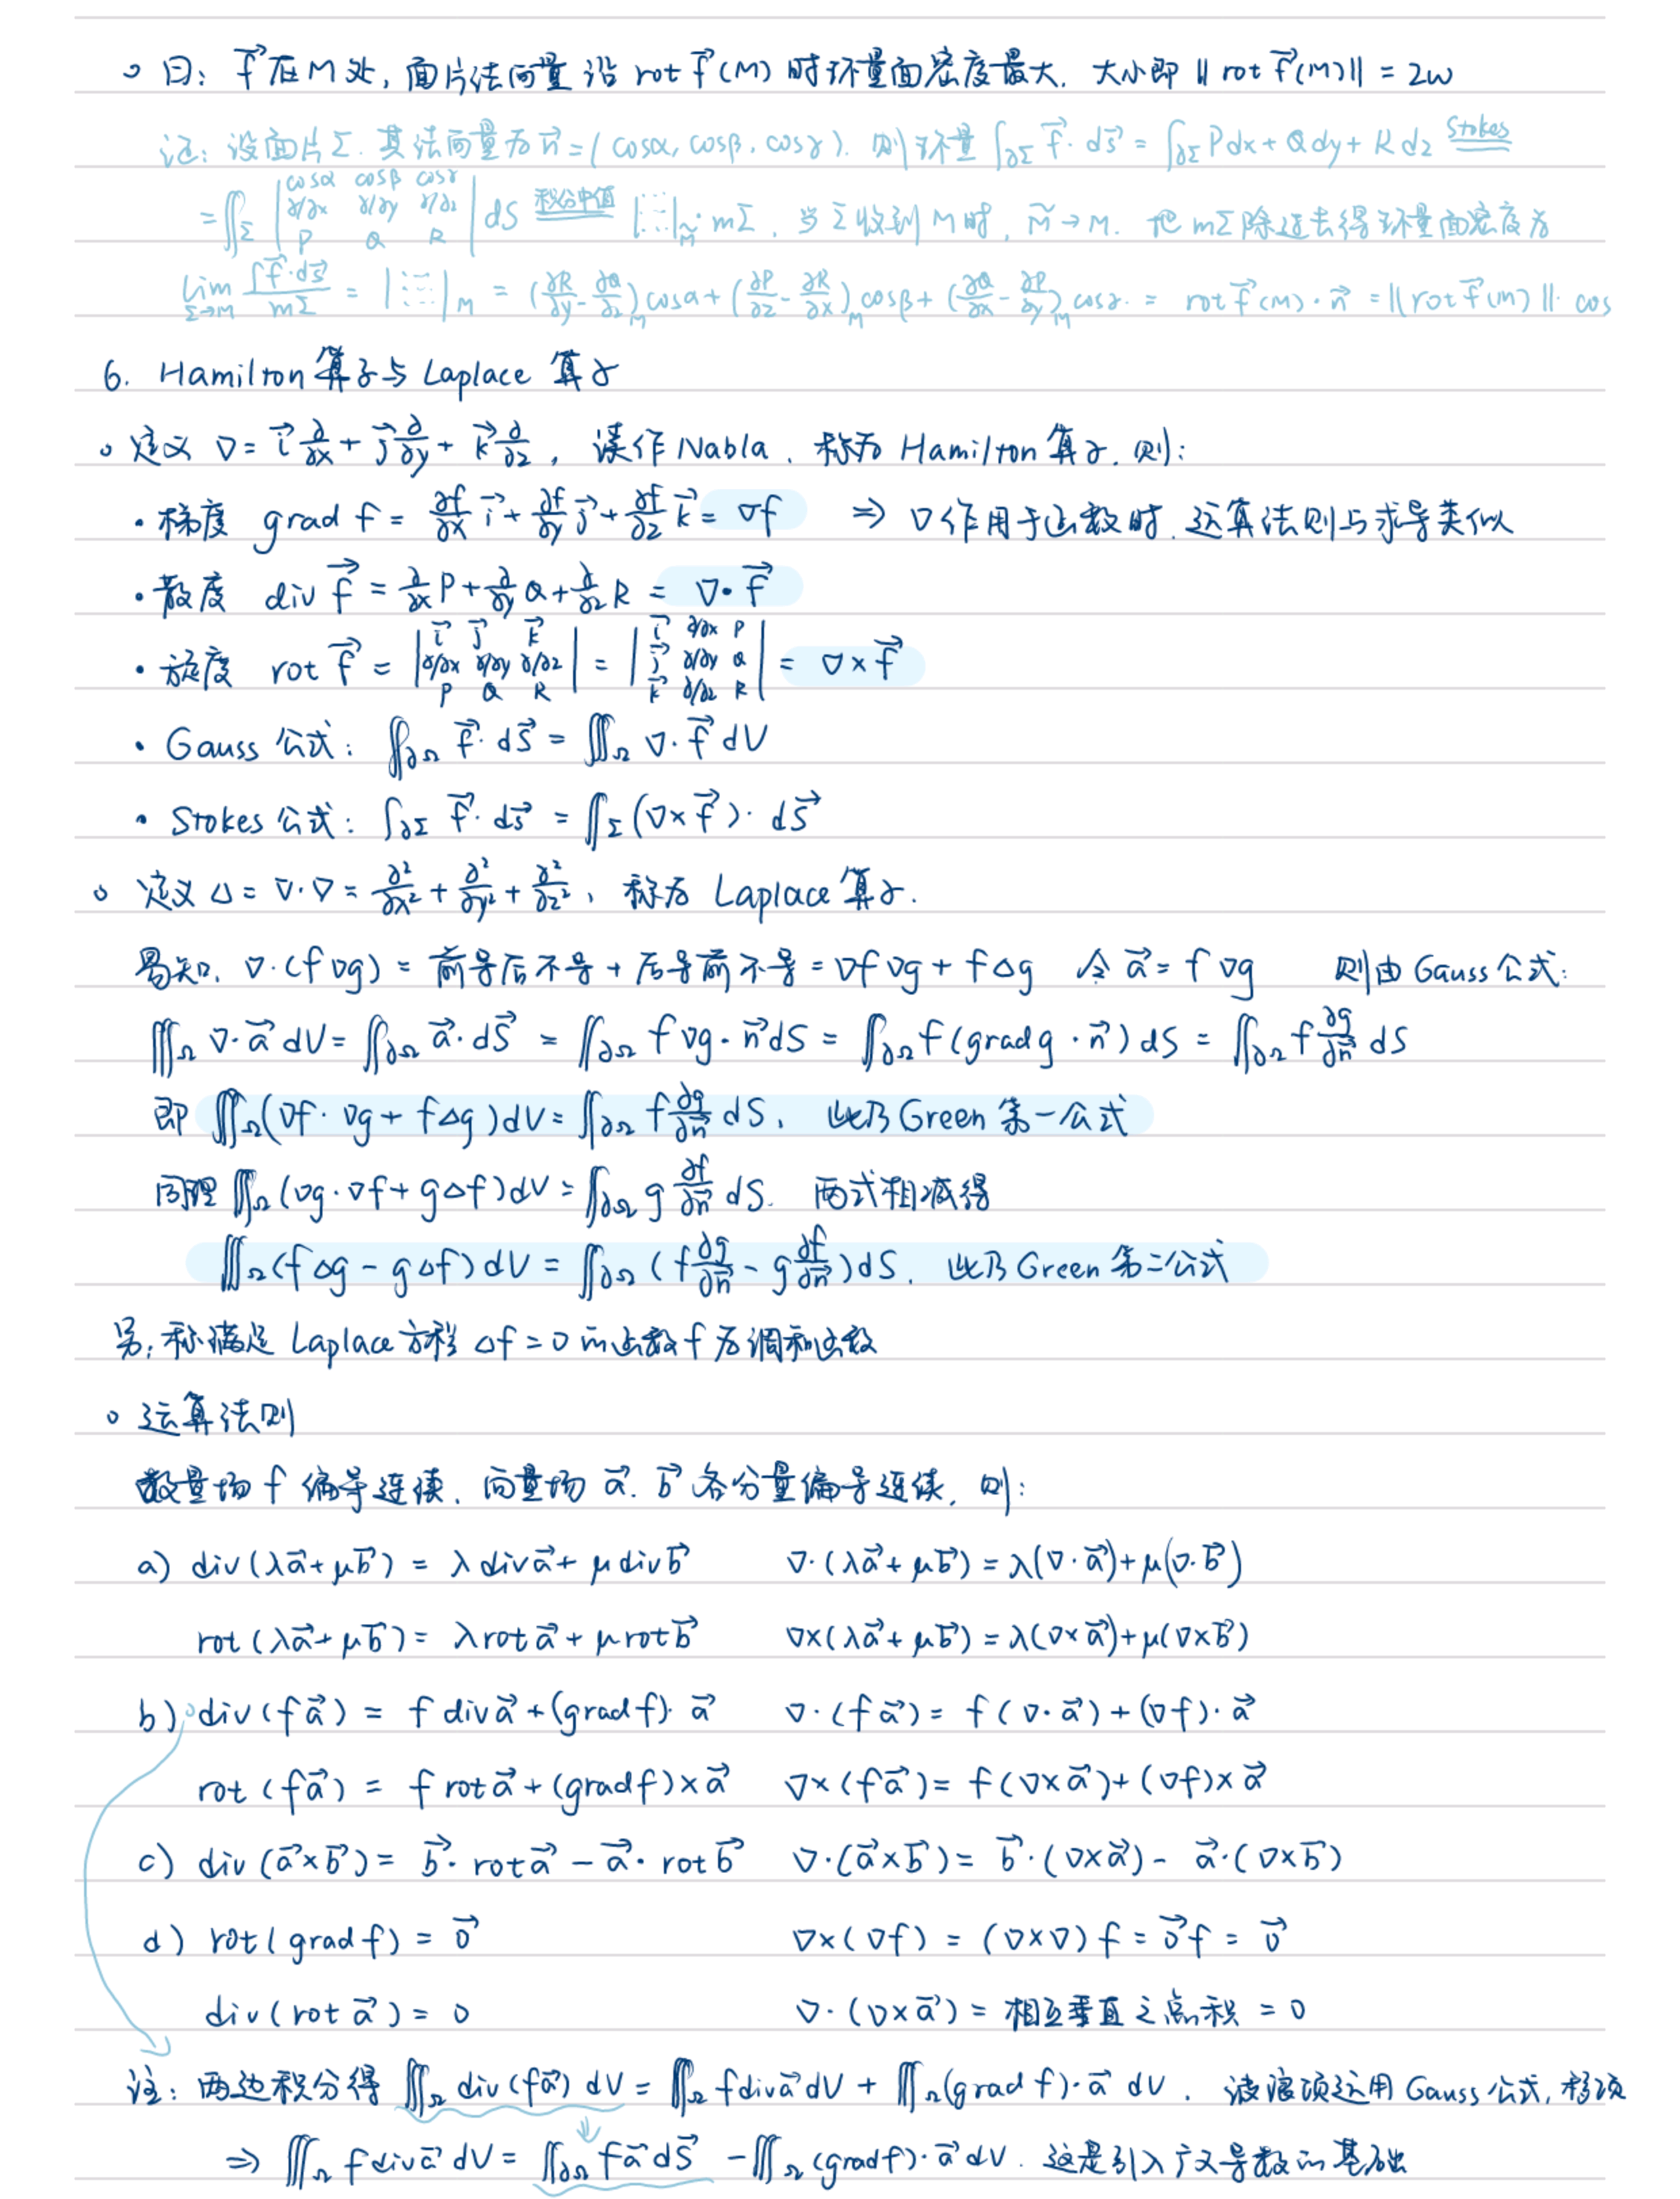 ○ 曰: $\vec{f}$ 在M处, 面片法向量沿 rot $\vec{f}$(M) 时环量面密度最大. 大小即 ‖rot $\vec{f}$(M)‖ = 2ω
证: 设面片Σ. 其法向量为 $\vec{n}$ = (cosα, cosβ, cosγ). 则环量 $\int_{\partial\Sigma} \vec{f}\cdot d\vec{s} = \int_{\partial\Sigma} Pdx + Qdy + Rdz \overset{Stokes}{=}$
$= \iint_\Sigma \begin{vmatrix} \cos\alpha & \cos\beta & \cos\gamma \\ \partial/\partial x & \partial/\partial y & \partial/\partial z \\ P & Q & R \end{vmatrix} dS \overset{积分中值}{=} |\cdots|_{\tilde{M}} \cdot m\Sigma$, 当Σ收到M时, $\tilde{M} \to M$. 把 mΣ 除过去得环量面密度为
$\lim_{\Sigma\to M} \frac{\int \vec{f}\cdot d\vec{s}}{m\Sigma} = |\cdots|_M = (\frac{\partial R}{\partial y} - \frac{\partial Q}{\partial z})_M \cos\alpha + (\frac{\partial P}{\partial z} - \frac{\partial R}{\partial x})_M \cos\beta + (\frac{\partial Q}{\partial x} - \frac{\partial P}{\partial y})_M \cos\gamma. = rot \vec{f}(M) \cdot \vec{n} = \|rot \vec{f}(M)\| \cdot \cos$
6. Hamilton 算子与 Laplace 算子
○ 定义 $\nabla = \vec{i}\frac{\partial}{\partial x} + \vec{j}\frac{\partial}{\partial y} + \vec{k}\frac{\partial}{\partial z}$, 读作 Nabla, 称为 Hamilton 算子. 则:
· 梯度 grad f = $\frac{\partial f}{\partial x}\vec{i} + \frac{\partial f}{\partial y}\vec{j} + \frac{\partial f}{\partial z}\vec{k} = \nabla f$ ⇒ ∇作用于函数时, 运算法则与求导类似
· 散度 div $\vec{f}$ = $\frac{\partial}{\partial x}P + \frac{\partial}{\partial y}Q + \frac{\partial}{\partial z}R = \nabla\cdot\vec{f}$
· 旋度 rot $\vec{f}$ = $\begin{vmatrix} \vec{i} & \vec{j} & \vec{k} \\ \partial/\partial x & \partial/\partial y & \partial/\partial z \\ P & Q & R \end{vmatrix} = \begin{vmatrix} \vec{i} & \partial/\partial x & P \\ \vec{j} & \partial/\partial y & Q \\ \vec{k} & \partial/\partial z & R \end{vmatrix} = \nabla\times\vec{f}$
· Gauss 公式: $\iint_{\partial\Omega} \vec{f}\cdot d\vec{S} = \iiint_\Omega \nabla\cdot\vec{f} dV$
· Stokes 公式: $\int_{\partial\Sigma} \vec{f}\cdot d\vec{s} = \iint_\Sigma (\nabla\times\vec{f})\cdot d\vec{S}$
○ 定义 $\Delta = \nabla\cdot\nabla = \frac{\partial^2}{\partial x^2} + \frac{\partial^2}{\partial y^2} + \frac{\partial^2}{\partial z^2}$, 称为 Laplace 算子.
易知, ∇·(f∇g) = 前导后不导 + 后导前不导 = ∇f∇g + fΔg 令 $\vec{a}$ = f∇g 则由 Gauss 公式:
$\iiint_\Omega \nabla\cdot\vec{a} dV = \iint_{\partial\Omega} \vec{a}\cdot d\vec{S} = \iint_{\partial\Omega} f\nabla g\cdot\vec{n} dS = \iint_{\partial\Omega} f(grad g\cdot\vec{n}) dS = \iint_{\partial\Omega} f\frac{\partial g}{\partial\vec{n}} dS$
即 $\iiint_\Omega (\nabla f\cdot\nabla g + f\Delta g) dV = \iint_{\partial\Omega} f\frac{\partial g}{\partial\vec{n}} dS$, 此乃 Green 第一公式
同理 $\iiint_\Omega (\nabla g\cdot\nabla f + g\Delta f) dV = \iint_{\partial\Omega} g\frac{\partial f}{\partial\vec{n}} dS$. 两式相减得
$\iiint_\Omega (f\Delta g - g\Delta f) dV = \iint_{\partial\Omega} (f\frac{\partial g}{\partial\vec{n}} - g\frac{\partial f}{\partial\vec{n}}) dS$. 此乃 Green 第二公式
另: 称满足 Laplace 方程 Δf = 0 的函数 f 为调和函数
○ 运算法则
数量场 f 偏导连续, 向量场 $\vec{a}$. $\vec{b}$ 各分量偏导连续, 则:
a) div(λ$\vec{a}$ + μ$\vec{b}$) = λ div$\vec{a}$ + μ div$\vec{b}$ ∇·(λ$\vec{a}$ + μ$\vec{b}$) = λ(∇·$\vec{a}$) + μ(∇·$\vec{b}$)
rot(λ$\vec{a}$ + μ$\vec{b}$) = λ rot$\vec{a}$ + μ rot$\vec{b}$ ∇×(λ$\vec{a}$ + μ$\vec{b}$) = λ(∇×$\vec{a}$) + μ(∇×$\vec{b}$)
b) div(f$\vec{a}$) = f div$\vec{a}$ + (grad f)·$\vec{a}$ ∇·(f$\vec{a}$) = f(∇·$\vec{a}$) + (∇f)·$\vec{a}$
rot(f$\vec{a}$) = f rot$\vec{a}$ + (grad f)×$\vec{a}$ ∇×(f$\vec{a}$) = f(∇×$\vec{a}$) + (∇f)×$\vec{a}$
c) div($\vec{a}$×$\vec{b}$) = $\vec{b}$·rot$\vec{a}$ − $\vec{a}$·rot$\vec{b}$ ∇·($\vec{a}$×$\vec{b}$) = $\vec{b}$·(∇×$\vec{a}$) − $\vec{a}$·(∇×$\vec{b}$)
d) rot(grad f) = $\vec{0}$ ∇×(∇f) = (∇×∇)f = $\vec{0}$f = $\vec{0}$
div(rot $\vec{a}$) = 0 ∇·(∇×$\vec{a}$) = 相互垂直之点积 = 0
注: 两边积分得 $\iiint_\Omega div(f\vec{a}) dV = \iiint_\Omega f div\vec{a} dV + \iiint_\Omega (grad f)\cdot\vec{a} dV$. 波浪项运用 Gauss 公式, 移项
⇒ $\iiint_\Omega f div\vec{a} dV = \iint_{\partial\Omega} f\vec{a} d\vec{S} - \iiint_\Omega (grad f)\cdot\vec{a} dV$. 这是引入广义导数的基础